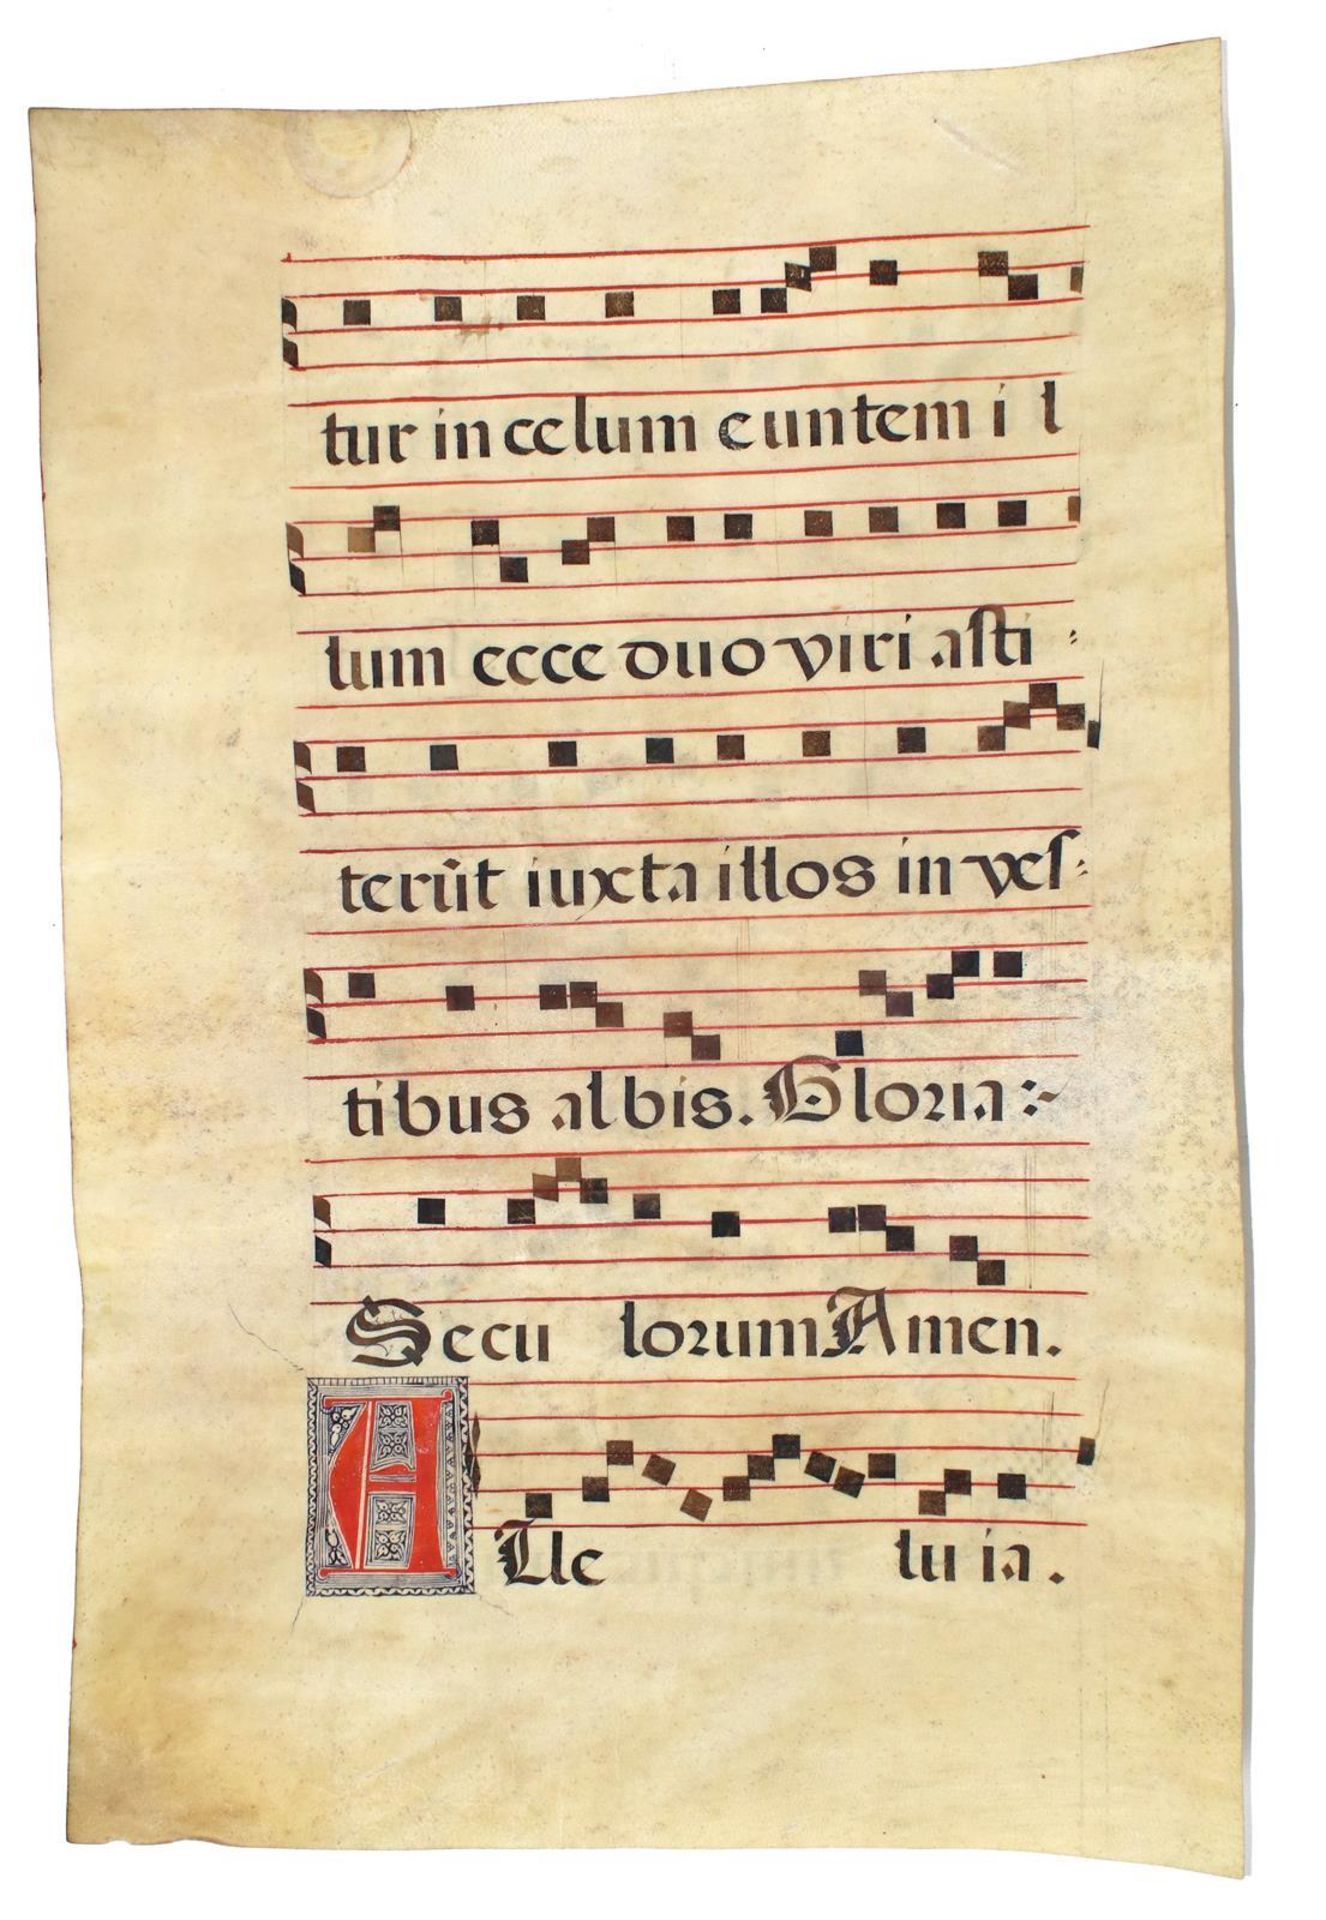 tur in celum euntem il
lum ecce duo viri asti-
terũt iuxta illos in ves-
tibus albis. Gloria
Seculorum Amen.
ALleluia.